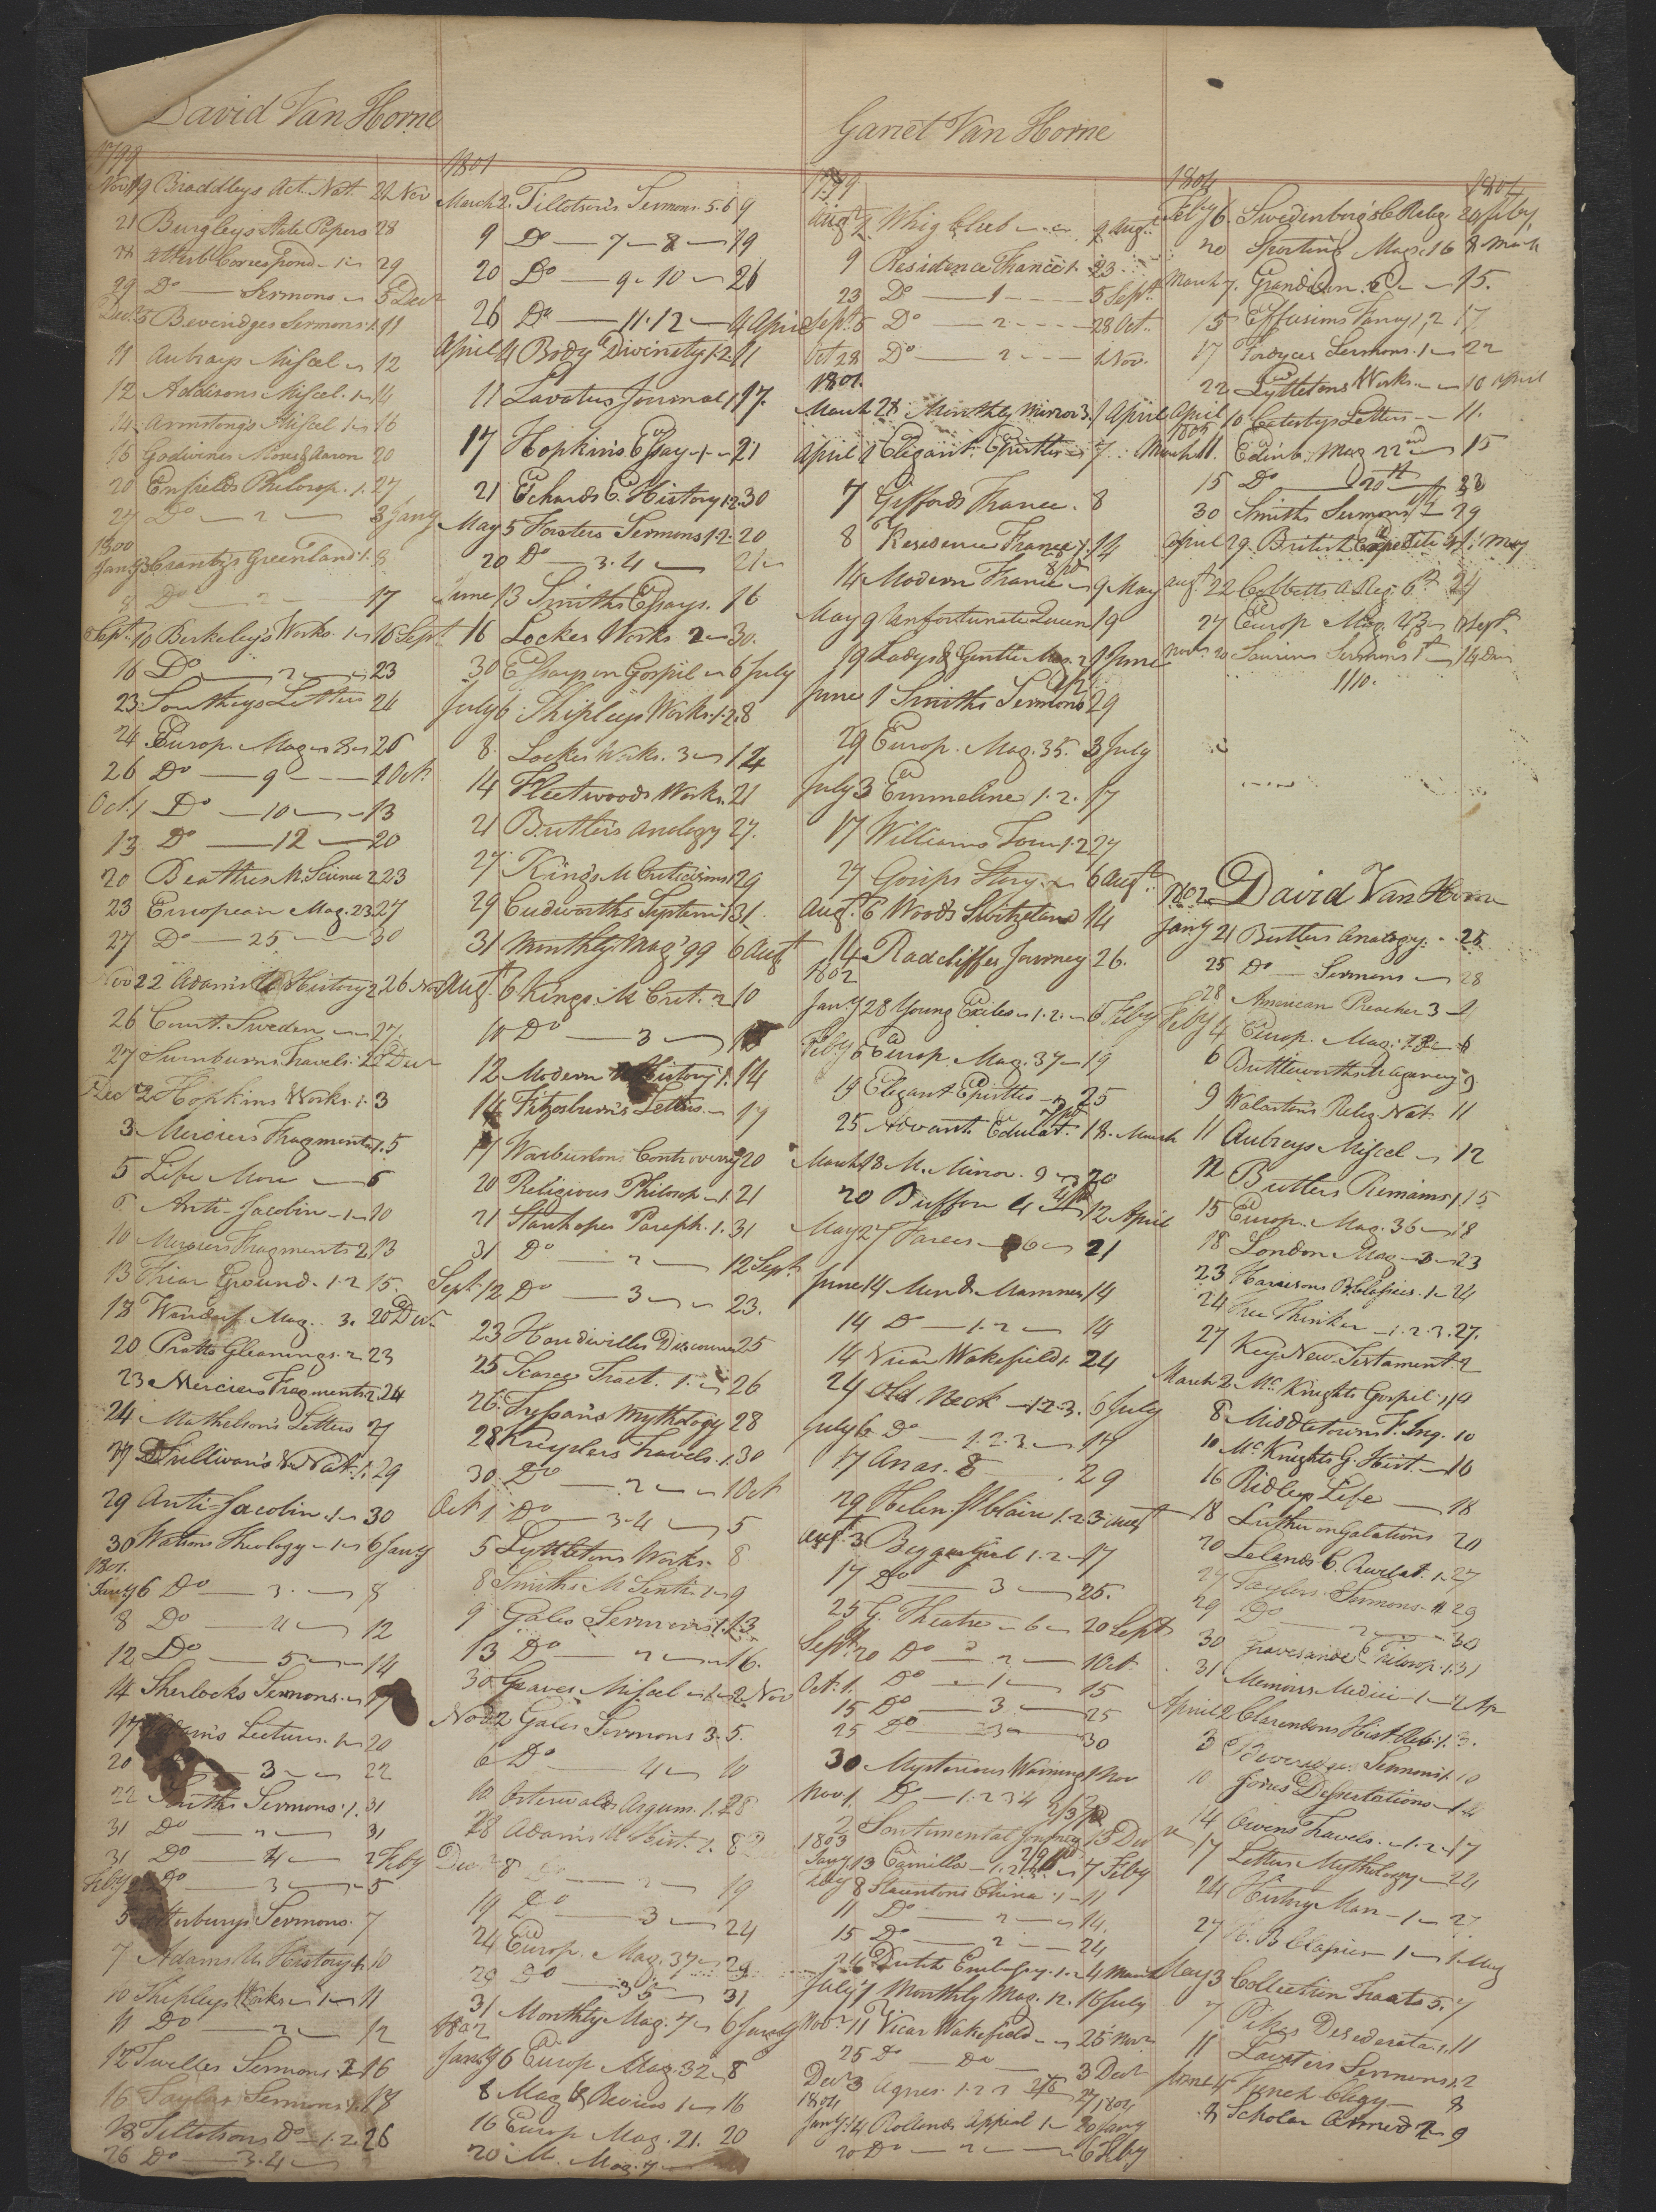 David Van Horne
1799
Novr 19 Braddleys Act. Nat. 21 Nov
21 Burgleys State Papers 28
28 Atterb Correspond - 1 29
29 Do Sermons 5 Decr
Decr 5 Beveridges Sermons 1. 11
11 Aubrays Miscel 12
12 Addisons Miscel. 1 14
14 Armstrongs Miscel 1 16
16 Godwines Moses & Aaron 20
20 Enfields Philosop. 1. 27
27 Do 2 3 Jany
1800
Jany 3 Crantz's Greenland 1. 8
8 Do 2 17
Sept. 10 Berkeley's Works. 1 16 Sept
16 Do 2 23
23 Southeys Letters 24
24 Europ. Mag 8 26
26 Do 9 1 Oct
Oct. 1 Do 10 13
13 Do 12 20
20 Beatties M. Science 2 23
23 European Mag. 23 27
27 Do 25 30
Nov 22 Adams's History 2 26 Nov
26 Court Sweden 27
27 Swinburns Travels 1 2 Decr
Dec 2 Hopkins Works. 1. 3
3 Merciers Fragments 1. 5
5 Life More 6
6 Anti-Jacolin - 1 10
10 Merciers Fragments 2 13
13 Friar Ground. 1. 2 15
18 Mag. 3. 20 Decr
20 Pratts Gleanings. 2 23
23 Merciers Fragments 2. 24
24 Mathelson's Letters 27
27 Sullivan's V. Nat. 1. 29
29 Anti-Jacolin. 1 30
30 Watsons Theology - 1 6 Jany
1801.
Jany 6 Do 3. 8
8 Do 4 12
12 Do 5 14
14 Sherlocks Sermons 17
17 Lectures. 1 20
20 3 22
22 Smiths Sermons. 1. 31
31 Do 2 31
31 Do 4 2 Feby
Feby 2 Do 3 5
5 Atterburys Sermons. 7
7 Adams U. History 1. 10
10 Shipleys Works 1 11
11 Do 2 12
12 Twelles Sermons 2 16
16 Taylor Sermons 1. 18
18 Tillotsons Do 1. 2. 26
26 Do 3. 4
1801
March 2. Tillotson's Sermons. 5. 6 9
9 Do 7 8 19
20 Do 9. 10 26
26 Do 11. 12 4 April
April 4 Body Divinety 1. 2 11
11 Lavatus Journal 1 17.
17 Hopkins Essay 1 21
21 Echards E. History 1. 2. 30
May 5 Forsters Sermons 1. 2. 20
20 Do 3. 4 21
June 13 Smiths Essays. 16
16 Lockes Works 2 30.
30 Essays on Gospil 6 July
July 6 Shipleys Works. 1. 2. 8
8. Lockes Works. 3 14
14 Fleetwoods Works. 21
21 Butlers Analogy 27.
27 Kings M Criticisms 1 29
29 Cudworths System 1 31
31 Monthly Mag '99 6 Augt
Augt 6 Kings M Crit. 2 10
10 Do 3
12 Modern History 1. 14
14 Fitzosburn's Letters 17
17 Warburtons Controversy 20
20 Religious Philosop 1. 21
21 Stanhopes Paraph. 1. 31
31 Do 2 12 Sept.
Sept. 12 Do 3 23.
23 Houdivilles Discourses 25
25 Scarce Tract. 1. 26
26 Tressan's Mythology 28
28 Kreyslers Travels. 1. 30
30 Do 2 1 Oct
Oct 1 Do 3. 4 5
5 Lyttletons Works. 8
8 Smiths M Senti 1 9
9 Gales Sermons 1. 13
13 Do 2 16.
30 Graves Miscel 1 2 Nov
Nov. 2 Gales Sermons 3. 5.
6 Do 4 10
10 Osterwalds Argum. 1. 2 28
28 Adams U Hist. 1. 8 Dec
Decr 8 Do 2 19
19 Do 3 24
24 Europ. Mag. 37 29
29 Do 35 31
31 Monthly Mag. 7 6 Jany
1802
Jany 6 Europ Mag. 32 8
8 Mag & Review 1 16
16 Europ Mag. 21. 20
20 M. Mag. 7
Garret Van Horne
1799
Augt 2 Whig Club 9 Augt
9 Residence France 1. 23
23 Do 1 5 Sept
Sept. 5 Do 2 28 Oct.
Oct 28 Do 2 1 Nov.
1801.
March 28 Monthly Mirror 3. 1 April
April 1 Elegant Epistles 7
7 Giffords France. 8
8 Residence France 1. 14
14 Modern France 9 May
May 9 Unfortunate Queen 19
19 Ladys & Gentle Mag. 2 1 June
June 1 Smiths Sermons 29
29 Europ. Mag. 35. 3 July
July 3 Emmeline 1. 2. 17
17 Williams Tour 1. 2 27
27 Gosips Story 6 Augt
Augt. 6 Woods Switzeland 14
14 Radcliffes Journey 26.
1802
Jany 28 Young Exiles 1. 2. 5 Feby
Feby 6 Europ Mag. 37 19
19 Elegant Epistles 25
25 Advant. Educat. 18. March
March 18 M. Mirror. 9 20
20 Buffon 4 12 April
May 27 Farces 6 21
June 14 Men & Manners 14
14 Do 1. 2 14
14 Vicar Wakefield 1. 24
24 Old Nick 1. 2. 3. 6 July
July 6 Do 1. 2. 3 17
17 Anas. 8 29
29 Helen St Claire 1. 2 3 Augt
Augt. 3 Beggar Girl 1. 2 17
17 Do 3 25.
25 G. Theatre 6 20 Sept
Sept. 20 Do 2 1 Oct.
Oct. 1. Do 1 15
15 Do 3 25
25 Do 3 30
30 Mysterious Warning 1 Nov
Nov. 1. Do 1. 2 3 4
2 Sentimental Journey 13 Dec
1803
Jany 13 Camilla 1. 2 7 Feby
Feby 8 Stauntons China 1 11
11 Do 2 14.
15 Do 2 24
26 Dutch Embassy. 1. 2 4 March
July 7 Monthly Mag. 12. 16 July
Novr 11 Vicar Wakefield 25 Novr
25 Do Do 3 Decr
Decr 3 Agnes. 1. 2 3 27. 1804
1804
Jany. 14 Rollands Appeal 1 20 Jany
20 Do 2 6 Feby
1804 1804
Feby 6. Swedenborg's C Relig. 20 Feby
20 Sporting Mag. 16 8 March
March 7. Grandison. 6 15.
15 Effusions Fancy 1, 2 17
17 Fordyces Sermons. 1 22
22 Lyttletons Works. 10 April
April 10 Catesbys Letters 11.
1805
March 11. Edinb. Mag 22nd 15
15 Do 20th 30
30 Smiths Sermons 29
April 29. British Expedite 1. May
Augt 22 Cobbetts A Reg. 6th 24
27 Europ Mag. 43 Sept.
Novr. 20 Saurins Sermons 14 Dec
1110.
1802 David Van Horne
Jany 21 Butlers Analogy. 25
25 Do Sermons 28
28 American Preacher 3
Feby 4 Europ. Mag. 6
6 Buttleworths Organery 9
9 Wolastons Relig. Nat. 11
11 Aubreys Miscel 12
12 Butlers Remains 1 15
15 Europ. Mag. 36 18
18 London Mag. 3 23
23 Harrisons B. Classics. 1 24
24 Free Thinker 1. 2. 3. 27.
27 Key New Testament. 2
March 2 McKnights Gospel 1 9
8 Middletowns F. Inq. 10
10 McKnights G. Hist. 16
16 Ridleys Life 18
18 Luther on Galations 20
20 Lelands C. Revelat. 1 27
27 Taylors Sermons 29
29 Do 2 30
30 Gravesande Philosop. 1. 31
31 Memoirs Medici 1 2 Ap
April 2 Clarendons Hist Reb. 1. 3.
3 Sermons 1. 10
10 Jones Dissertations 14
14 Owens Travels. 1. 2. 17
17 Letters Mythology 24
24 History Man 1 27
27 H. B Classics 1 1 May
May 3 Collection Tracts 5. 7
7 Pikes Desederata. 1. 11
11 Lavaters Sermons 1. 2
June 4 French Clergy 8
8 Scholar Armed 2 9